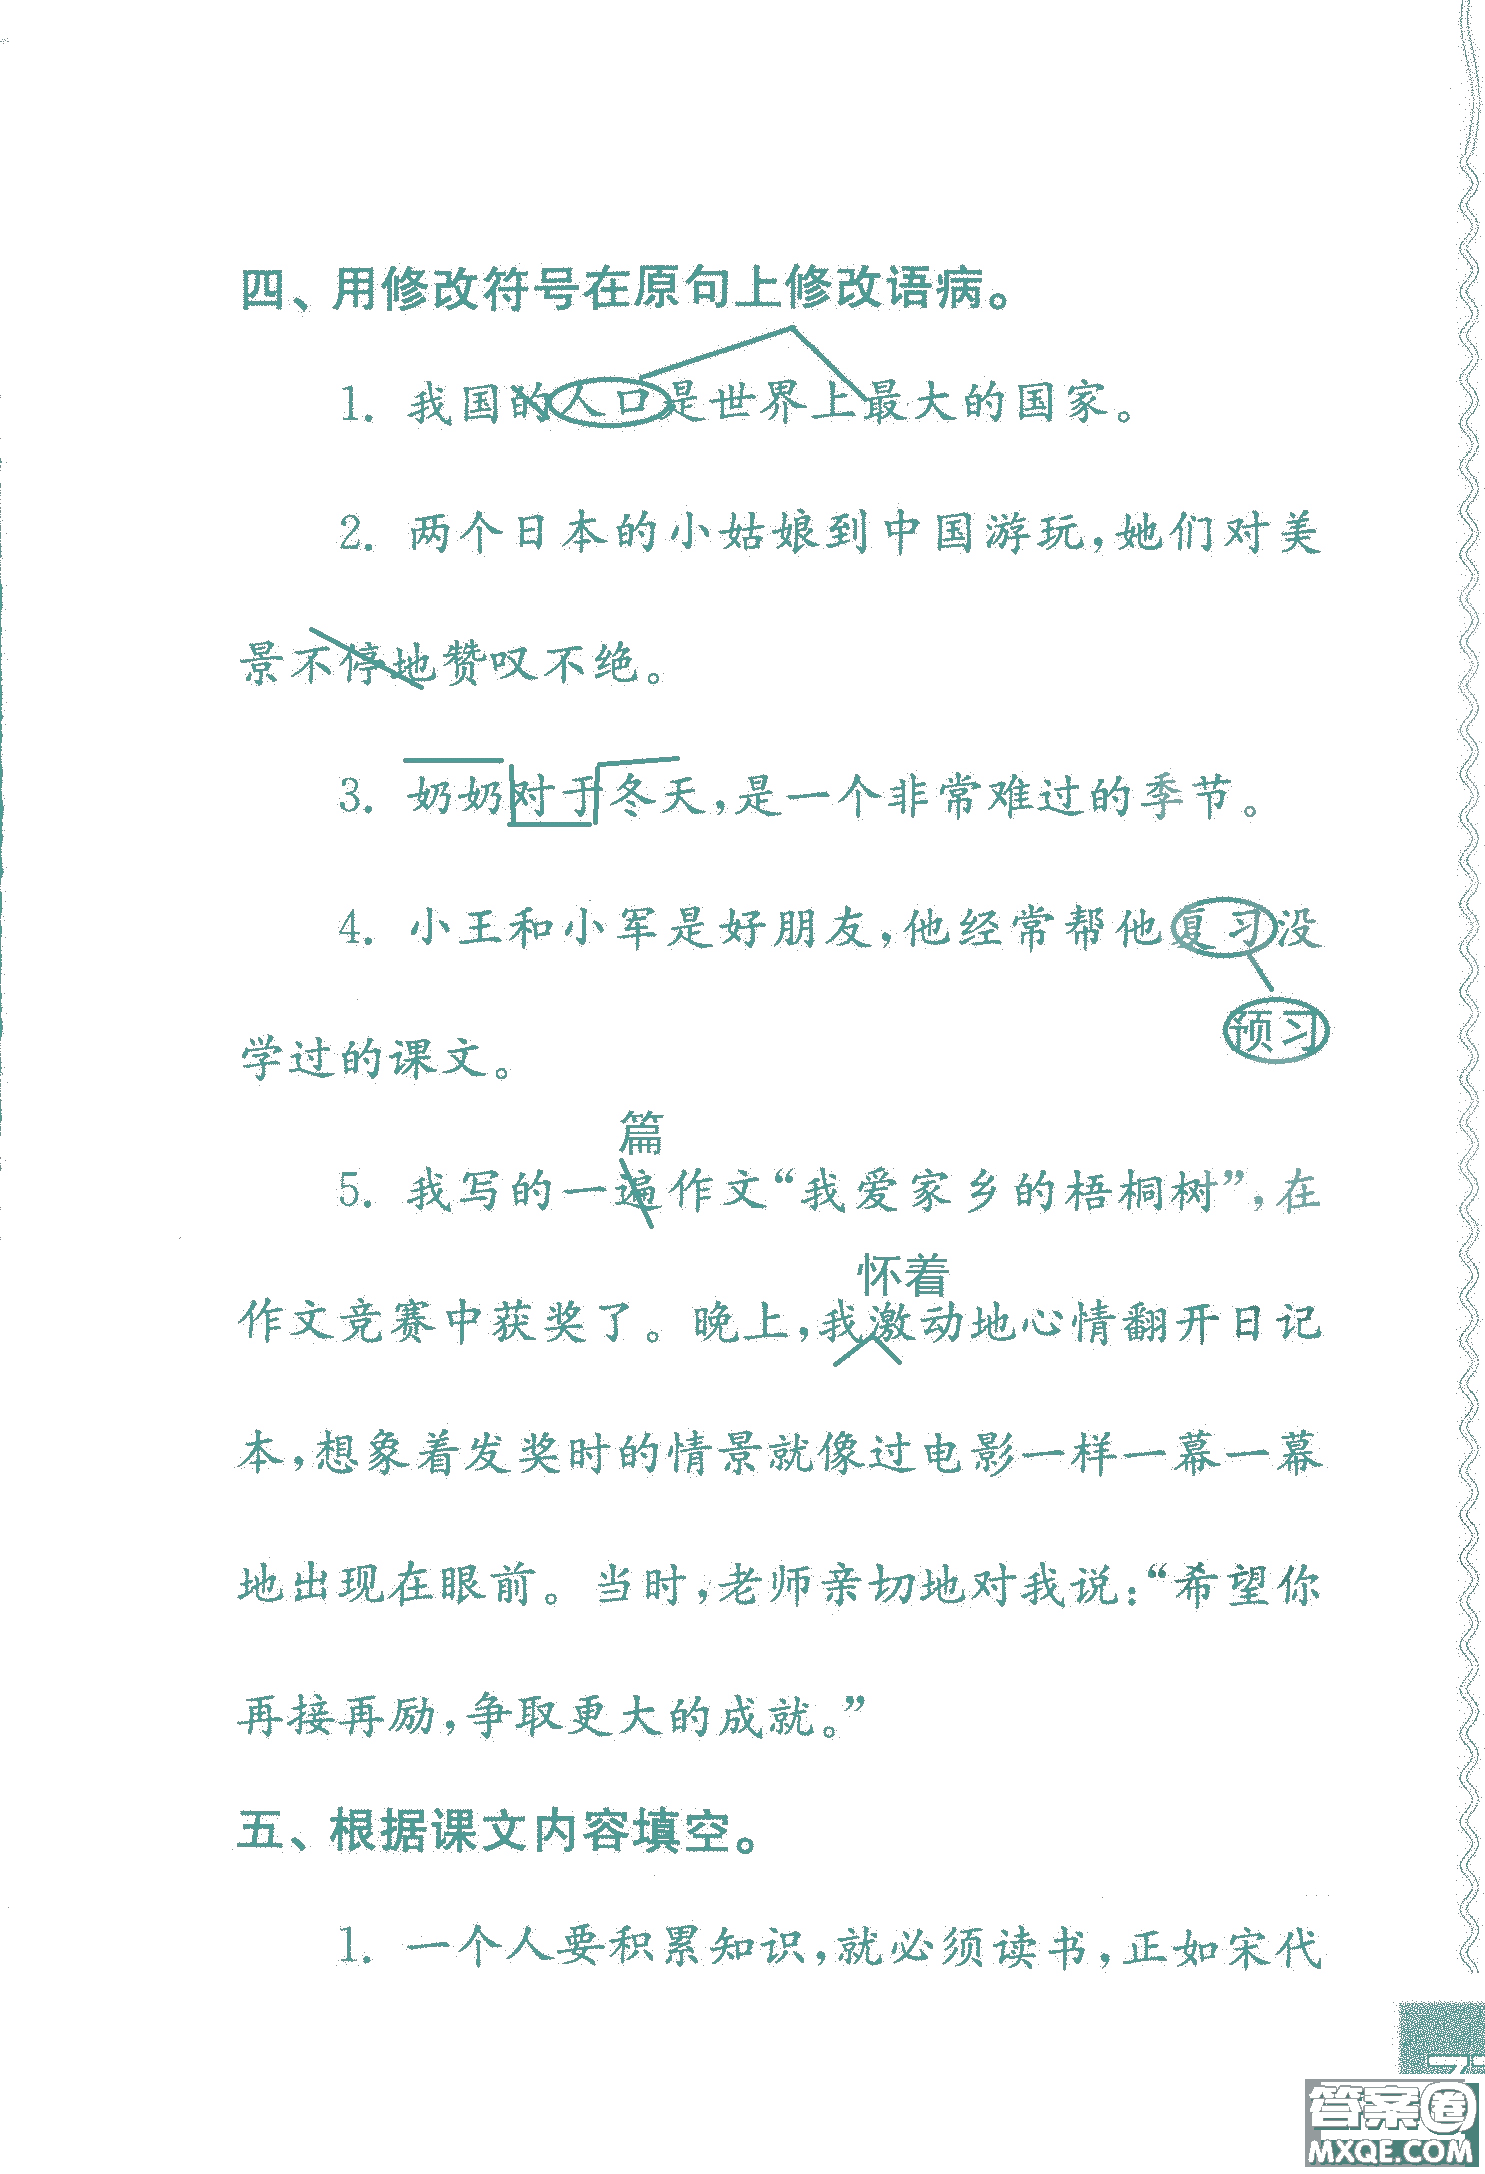 四、用修改符号在原句上修改语病。
1. 我国的人口是世界上最大的国家。
2. 两个日本的小姑娘到中国游玩,她们对美
景不停地赞叹不绝。
3. 奶奶对于冬天,是一个非常难过的季节。
4. 小王和小军是好朋友,他经常帮他复习没
预习
学过的课文。
篇
5. 我写的一遍作文“我爱家乡的梧桐树”,在
怀着
作文竞赛中获奖了。晚上,我激动地心情翻开日记
本,想象着发奖时的情景就像过电影一样一幕一幕
地出现在眼前。当时,老师亲切地对我说:“希望你
再接再励,争取更大的成就。”
五、根据课文内容填空。
1. 一个人要积累知识,就必须读书,正如宋代
答案圈
MXQE.COM